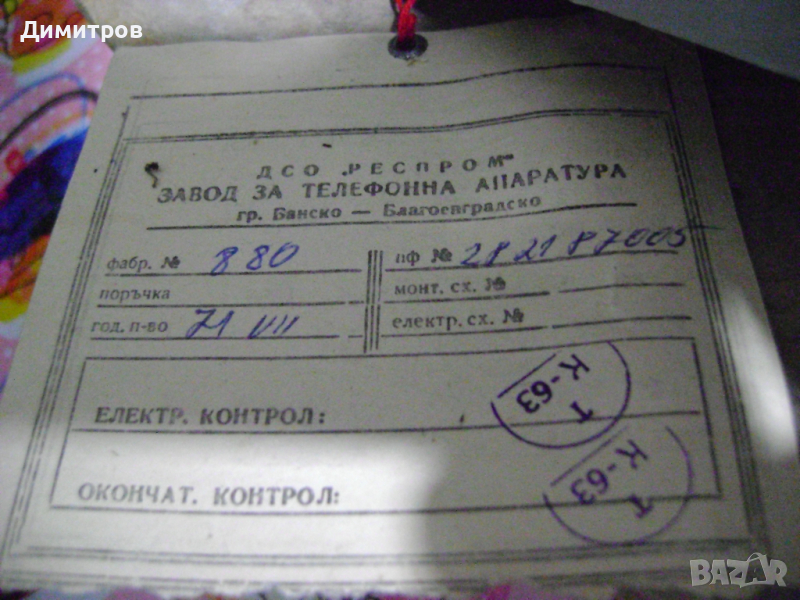 Димитров
ДСО „РЕСПРОМ“
ЗАВОД ЗА ТЕЛЕФОННА АПАРАТУРА
гр. Банско — Благоевградско
фабр. № 880
пф № 282187005
поръчка
монт. сх. №
год. п-во 71 VII
електр. сх. №
К-63
Т
ЕЛЕКТР. КОНТРОЛ:
К-63
Т
ОКОНЧАТ. КОНТРОЛ:
BAZAR